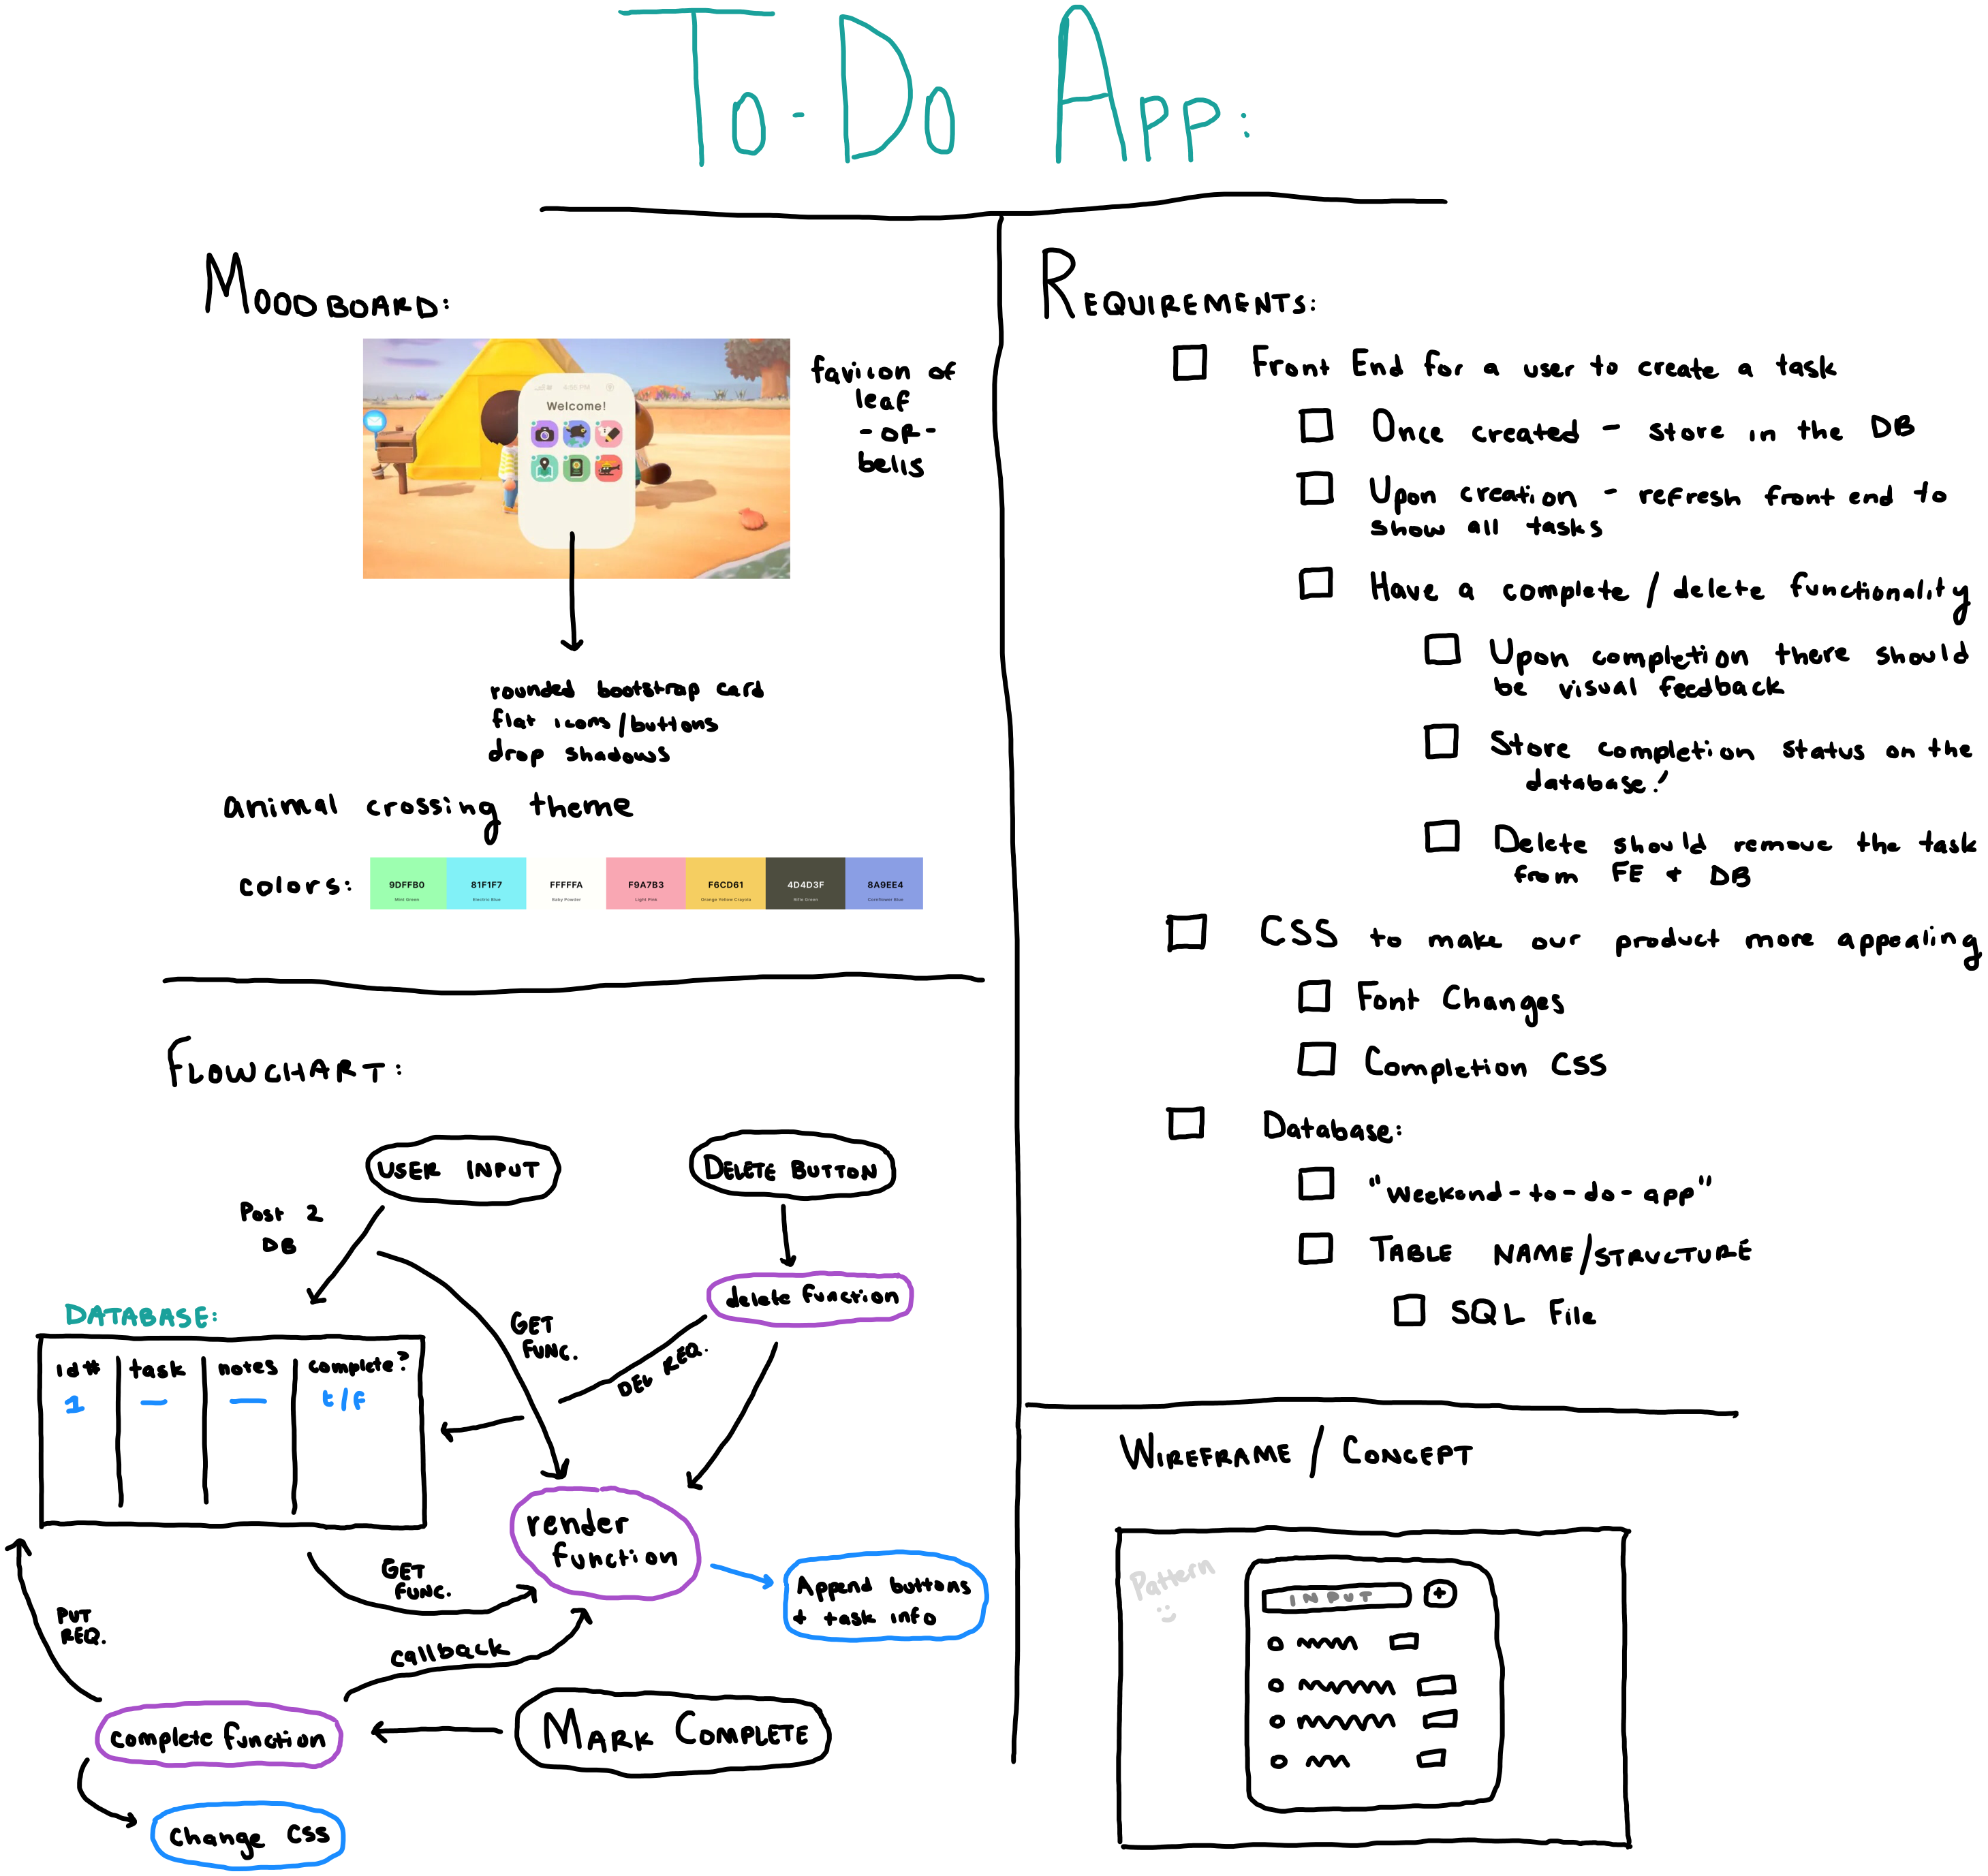 To-Do App:
Moodboard:
4:56 PM
Welcome!
favicon of
leaf
-OR-
bells
rounded bootstrap card
flat icons/buttons
drop shadows
animal crossing theme
colors:
9DFFB0
Mint Green
81F1F7
Electric Blue
FFFFFA
Baby Powder
F9A7B3
Light Pink
F6CD61
Orange Yellow Crayola
4D4D3F
Rifle Green
8A9EE4
Cornflower Blue
Flowchart:
USER INPUT
DELETE BUTTON
Post 2
DB
GET
FUNC.
delete function
DEL REQ.
DATABASE:
id# task notes complete?
1 — — t/F
render
function
Append buttons
+ task info
GET
FUNC.
PUT
REQ.
callback
complete function
MARK COMPLETE
change CSS
REQUIREMENTS:
Front End for a user to create a task
Once created - store in the DB
Upon creation - refresh front end to
show all tasks
Have a complete / delete functionality
Upon completion there should
be visual feedback
Store completion status on the
database!
Delete should remove the task
from FE + DB
CSS to make our product more appealing
Font Changes
Completion CSS
Database:
"weekend-to-do-app"
TABLE NAME/STRUCTURE
SQL File
WIREFRAME / CONCEPT
Pattern
INPUT
+